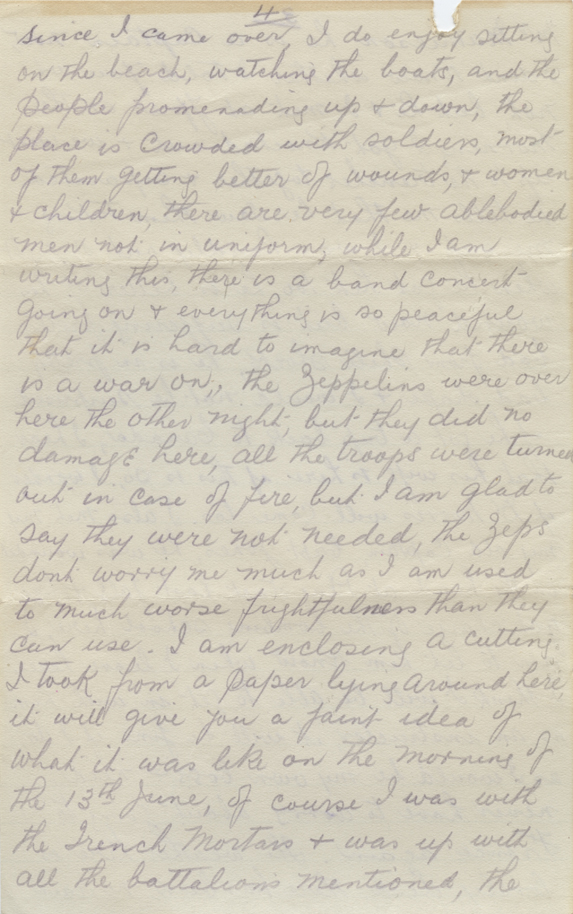 4
since I came over, I do enjoy sitting
on the beach, watching the boats, and the
people promenading up & down, the
place is Crowded with soldiers, most
of them getting better of wounds, & women
& children, there are very few ablebodied
men not in uniform, while I am
writing this, there is a band concert
going on & everything is so peaceful
that it is hard to imagine that there
is a war on, the Zeppelins were over
here the other night, but they did no
damage here, all the troops were turned
out in case of fire, but I am glad to
say they were not needed, the Zeps
dont worry me much as I am used
to much worse frightfulness than they
can use. I am enclosing a cutting
I took from a paper lying around here,
it will give you a faint idea of
what it was like on the morning of
the 13th June, of course I was with
the Trench Mortars & was up with
all the battalions mentioned, the